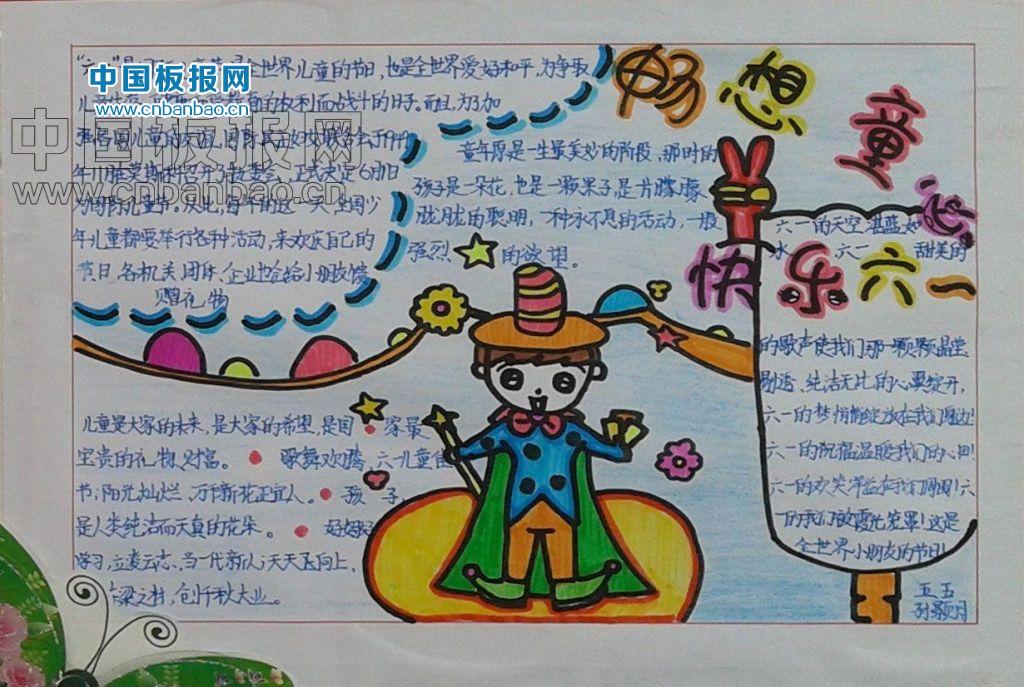 畅想童心
快乐六一
中国板报网
www.cnbanbao.cn
中国板报网
www.cnbanbao.cn
全世界儿童的节日，也是全世界爱好和平，为争取
的权利而战斗的日子。而且，为了加
强各国儿童的友谊，国际民主妇女联合会于1949
年11月在莫斯科召开了执委会，正式决定6月1日
为国际儿童节。从此，每年的这一天，全国少
年儿童都要举行各种活动，来欢庆自己的
节日，各机关、团体、企业也会给小朋友馈
赠礼物
童年原是一生最美妙的阶段，那时的
孩子是一朵花，也是一颗果子，是一片朦朦
胧胧的聪明，一种永不息的活动，一股
强烈的欲望。
六一的天空湛蓝如
水 六一 甜美的
的歌声使我们那一颗颗晶莹
剔透、纯洁无比的心翼绽开，
六一的梦悄悄绽放在我们身边！
六一的祝福温暖我们的心田！
六一的欢笑洋溢在我们周围！六
一的我们被霞光笼罩！这是
全世界小朋友的节日！
儿童是大家的未来，是大家的希望，是国家最
宝贵的礼物、财富。 歌舞欢腾，六一儿童佳
节；阳光灿烂，万千新花正宜人。 孩子
是人类纯洁而天真的花朵。 好好
学习，立凌云志，当一代新人；天天向上，
梁之材，创千秋大业。
五五
孙颢月